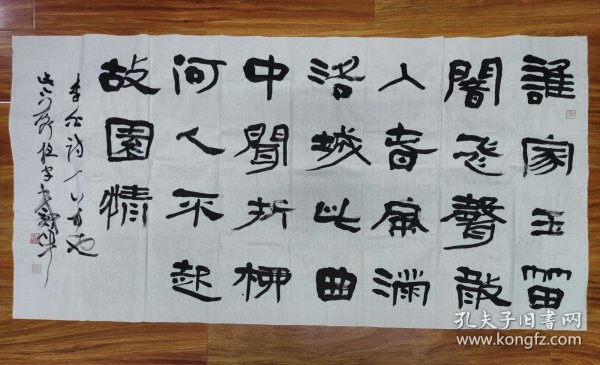 誰家玉笛
闇飛聲散
入春風滿
洛城此曲
中聞折柳
何人不起
故園情
李白詩
孔夫子旧书网
www.kongfz.com